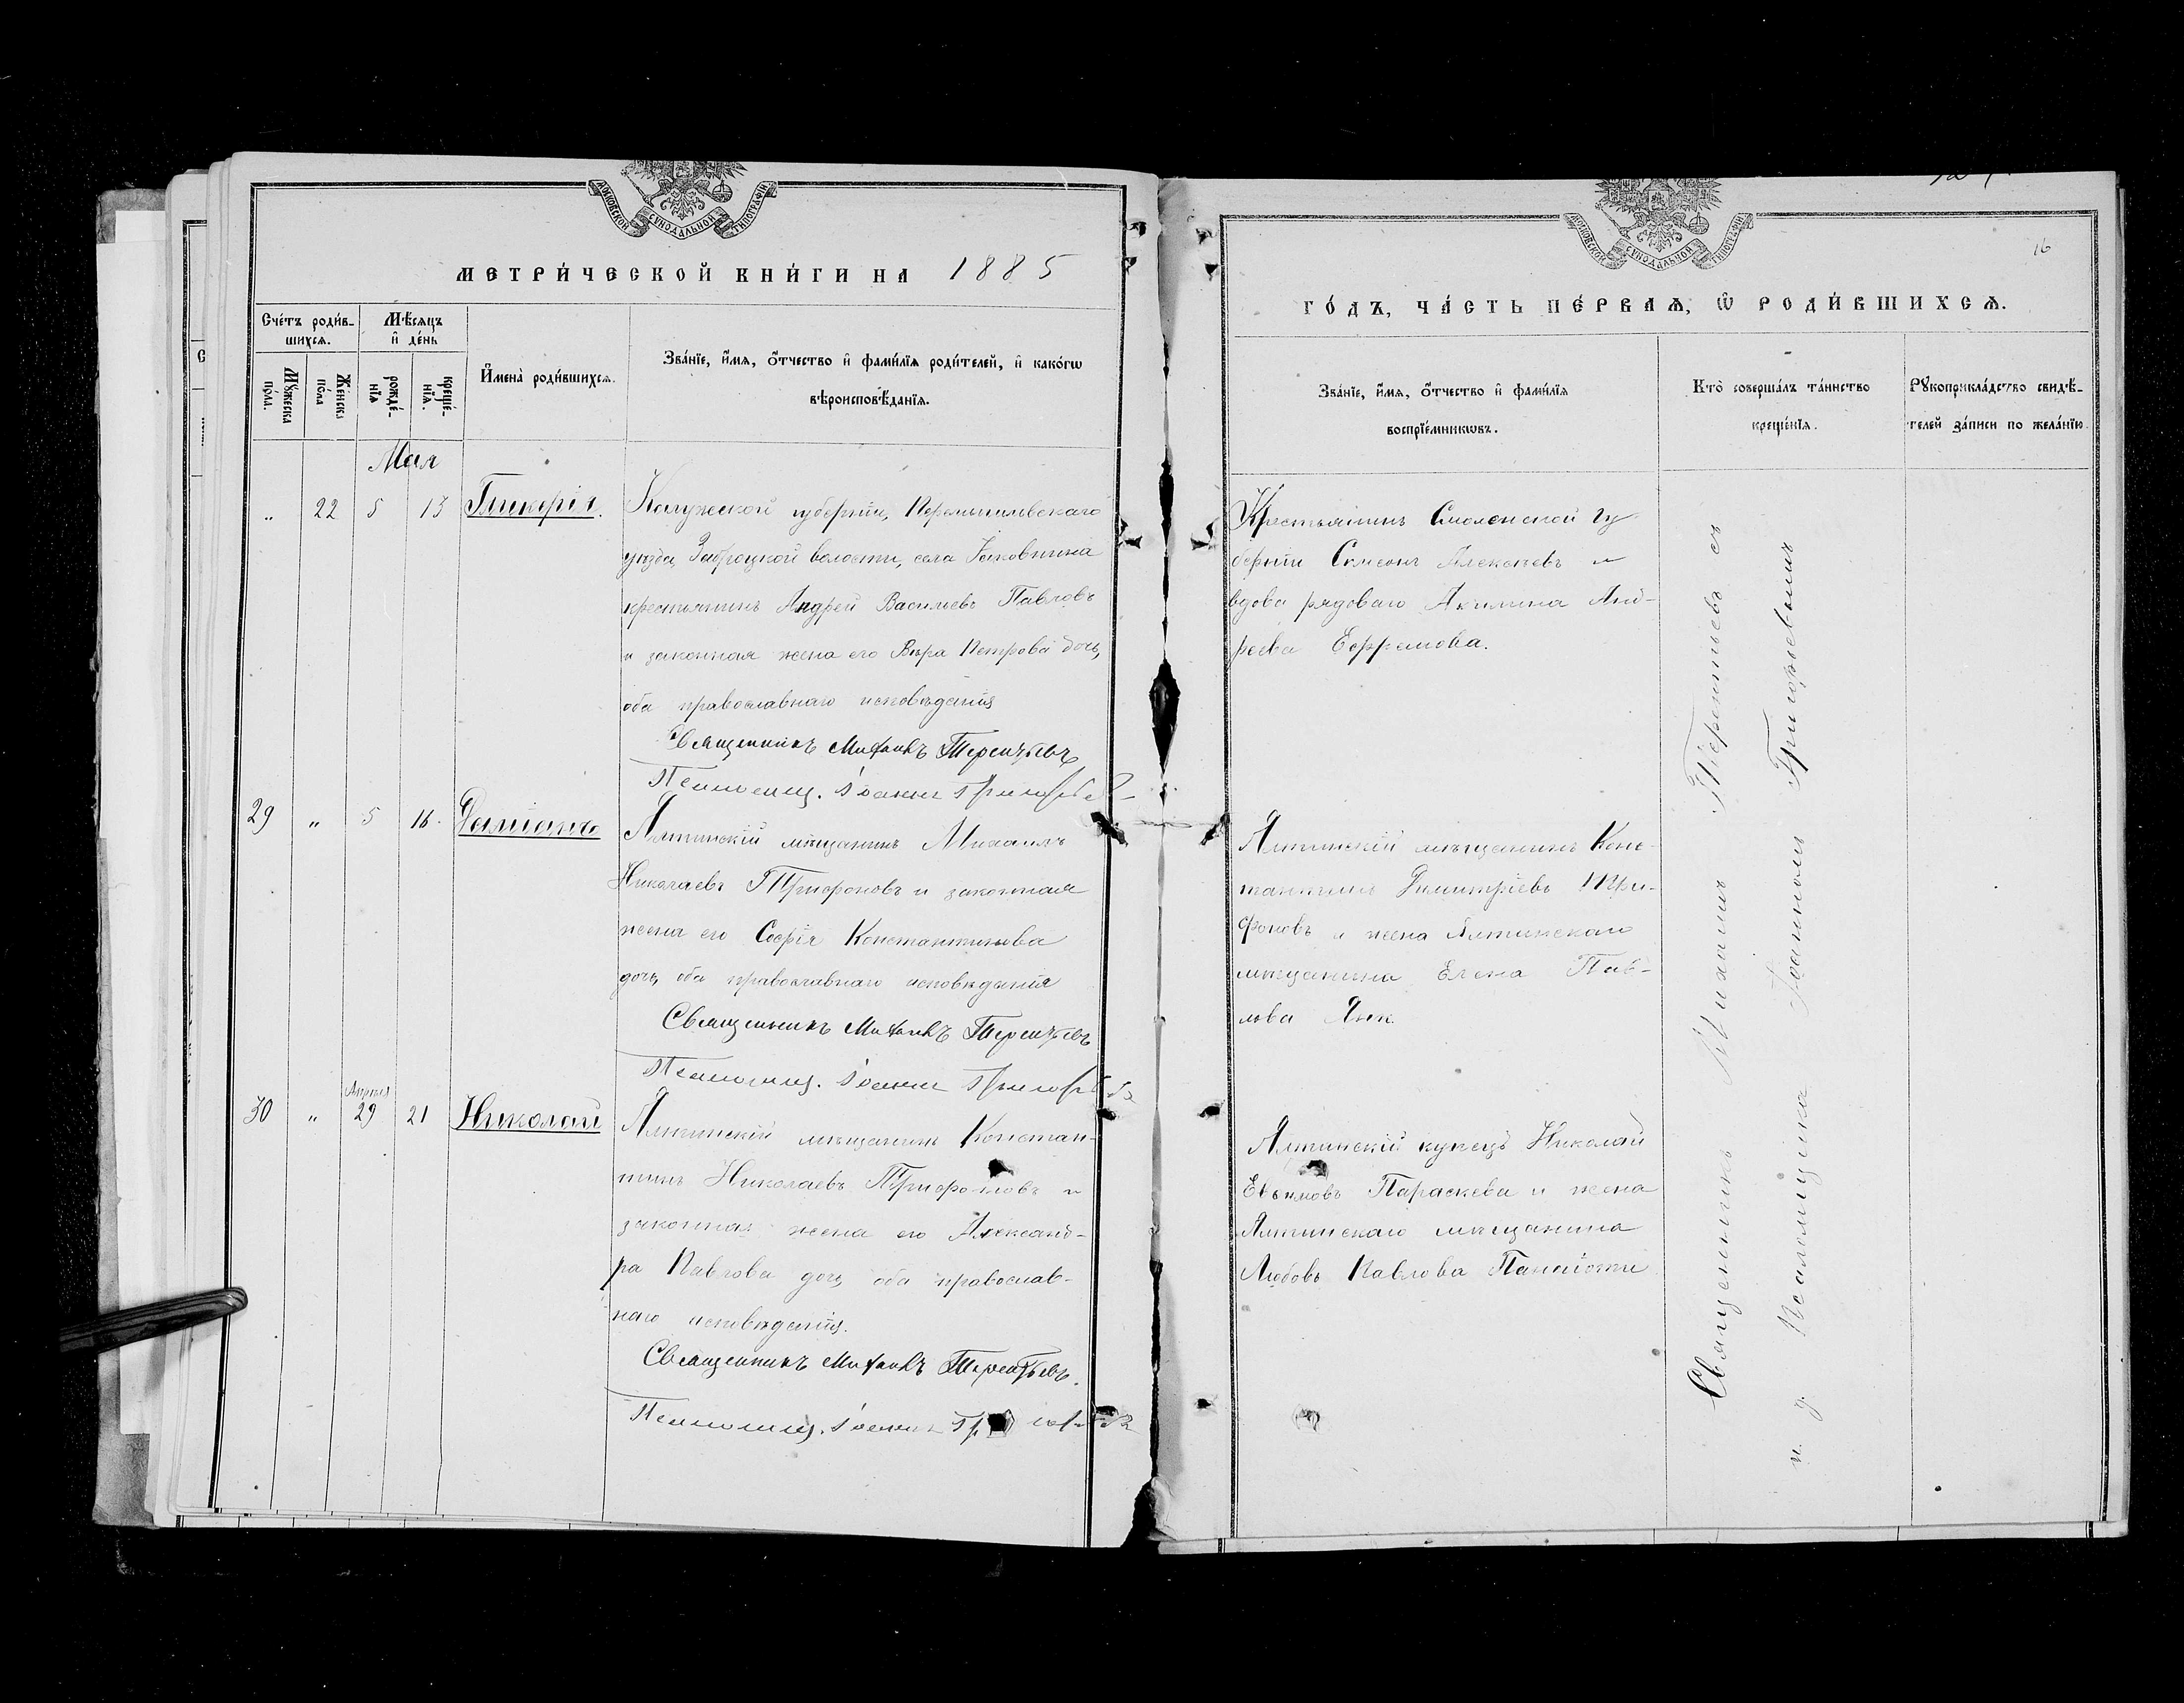 МОСКОВСКОЙ СѴНОДАЛЬНОЙ ТИПОГРАФІИ
МЕТРИ́ЧЕСКОЙ КНИ́ГИ НА 1885
Сче́тъ роди́в-
шихсѧ.
Мѣ́сѧцъ
и҆ де́нь
Мꙋ́жеска
по́ла.
Же́нска
по́ла
рожде́-
нїѧ
креще́-
нїѧ.
И҆мена̀ роди́вшихсѧ.
Зва́нїе, и҆́мѧ, ѻ҆́тчество и҆ фами́лїѧ роди́телей, и҆ како́гѡ
вѣроисповѣ́данїѧ.
Мая
„ 22 5 13 Гликерія.
Калужской губерніи, Перемышльскаго
уѣзда, волости, села
крестьянинъ Андрей Васильевъ Павловъ
и законная жена его Вѣра Петрова дочь,
оба православнаго исповѣданія
Священникъ Михаилъ Терентьевъ
Псаломщ. Іоаннъ Григорьевъ
29 „ 5 16. Даміанъ
Ялтинскій мѣщанинъ Михаилъ
Николаевъ Трифоновъ и законная
жена его Софія Константинова
дочь, оба православнаго исповѣданія
Священникъ Михаилъ Терентьевъ
Псаломщ. Іоаннъ Григорьевъ
Апрѣля
30 „ 29 21 Николай
Ялтинскій мѣщанинъ Констан-
тинъ Николаевъ Трифоновъ и
законная жена его Александ-
ра Павлова дочь, оба православ-
наго исповѣданія.
Священникъ Михаилъ Терентьевъ.
Псаломщ. Іоаннъ Григорьевъ
МОСКОВСКОЙ СѴНОДАЛЬНОЙ ТИПОГРАФІИ
16
ГО́ДЪ, ЧА́СТЬ ПЕ́РВАѦ, Ѡ҆ РОДИ́ВШИХСѦ.
Зва́нїе, и҆́мѧ, ѻ҆́тчество и҆ фами́лїѧ
воспрїе́мникѡвъ.
Кто̀ соверша́лъ та́инство
креще́нїѧ.
Рꙋкоприкла́дство свидѣ́-
телей за́писи по жела́нїю
Крестьянинъ Смоленской гу
берніи Симеонъ Алексѣевъ и
вдова рядоваго Акилина Анд-
реева Ефремова.
Ялтинскій мѣщанинъ Конс-
тантинъ Димитріевъ Три-
фоновъ и жена Ялтинскаго
мѣщанина Елена Пав-
лова
Ялтинскій купецъ Николай
Евѳимовъ Параскева и жена
Ялтинскаго мѣщанина
Любовь Павлова Панаіоти
Священникъ Михаилъ Терентьевъ съ
и. д. Псаломщика Іоанномъ Григорьевымъ